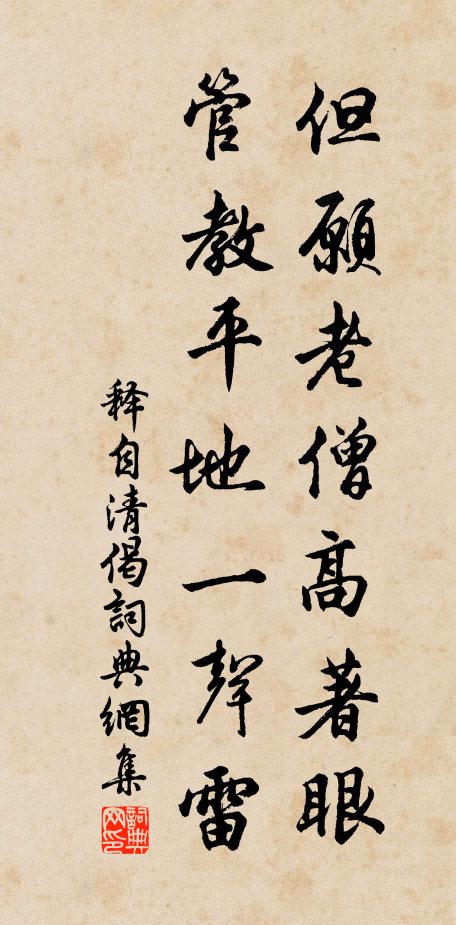 但願老僧高著眼
管教平地一聲雷
释自清偈詞典網集
詞典網印